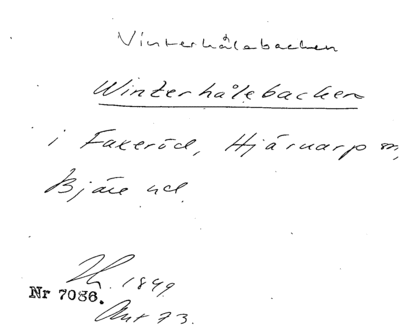 Vinterhålebacken
Winterhålebacken
i Faxeröd, Hjärnarp sn,
Bjäre hd.
1849.
Nr 7086.